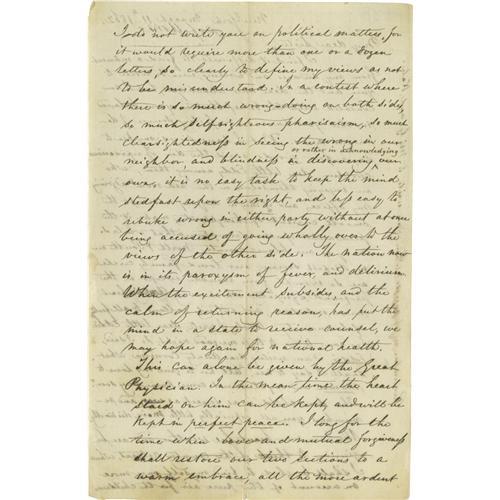 I do not write you on political matters, for
it would require more than one or a dozen
letters so clearly to define my views as not
to be misunderstood. In a contest where
there is so much wrong-doing on both sides,
so much self righteous pharisaism, so much
clearsightedness in seeing the wrong in our
or rather in acknowledging
neighbor, and blindness in discovering our
own, it is no easy task to keep the mind
stedfast upon the right, and less easy to
rebuke wrong in either party without at once
being accused of going wholly over to the
views of the other side. The nation now
is in its paroxysm of fever, and delirium.
When the excitement subsides, and the
calm of returning reason, has put the
mind in a state to receive counsel, we
may hope again for national health.
This can alone be given by the Great
Physician. In the mean time the heart
staid on him can be kept, and will be
kept in perfect peace. I long for the
time when love and mutual forgiveness
shall restore our two sections to a
warm embrace, all the more ardent